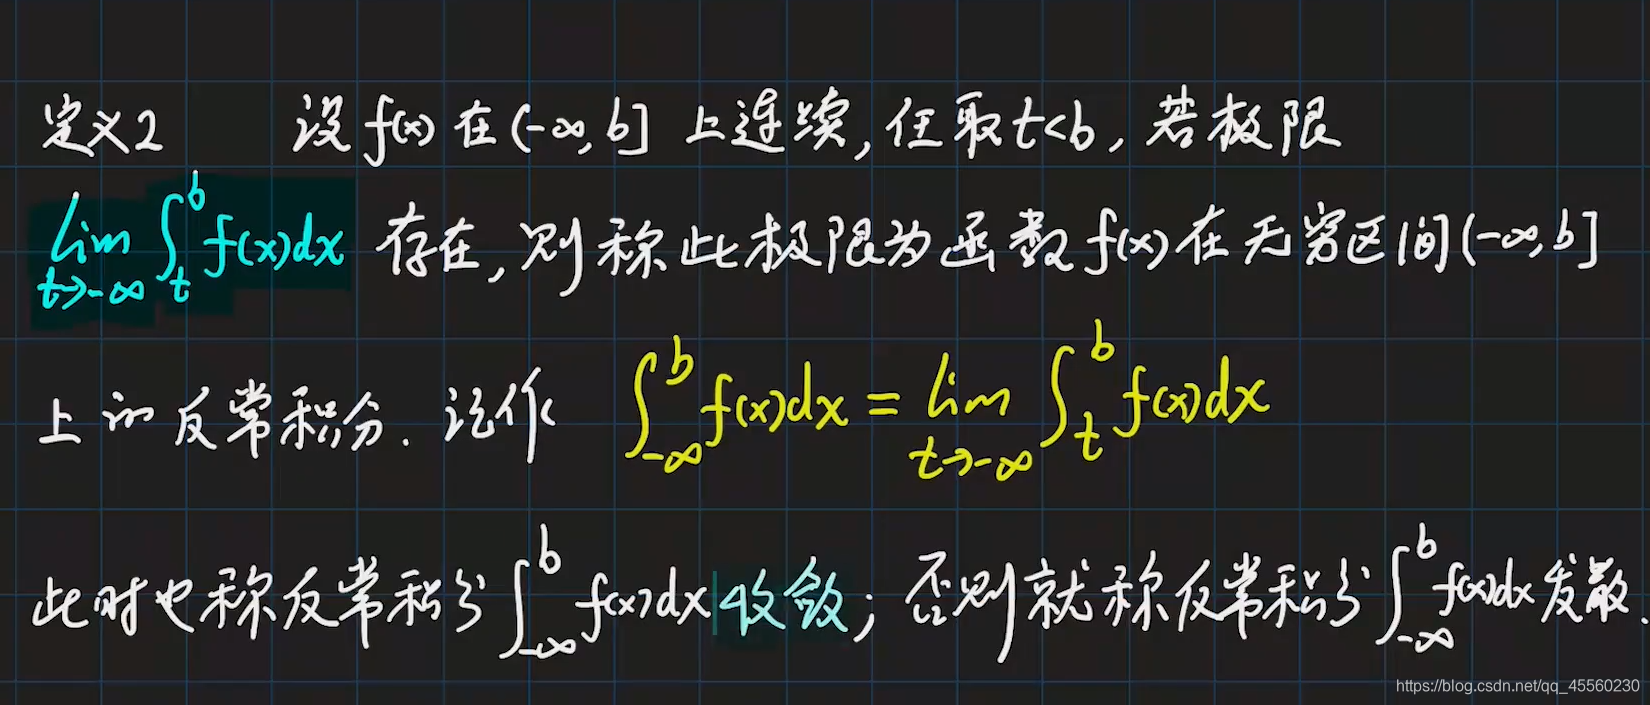 定义2 设 f(x) 在 (-∞, b] 上连续, 任取 t<b, 若极限
lim t→-∞ ∫_t^b f(x)dx 存在, 则称此极限为函数 f(x) 在无穷区间 (-∞, b]
上的反常积分. 记作 ∫_{-∞}^b f(x)dx = lim t→-∞ ∫_t^b f(x)dx
此时也称反常积分 ∫_{-∞}^b f(x)dx 收敛; 否则就称反常积分 ∫_{-∞}^b f(x)dx 发散.
https://blog.csdn.net/qq_45560230